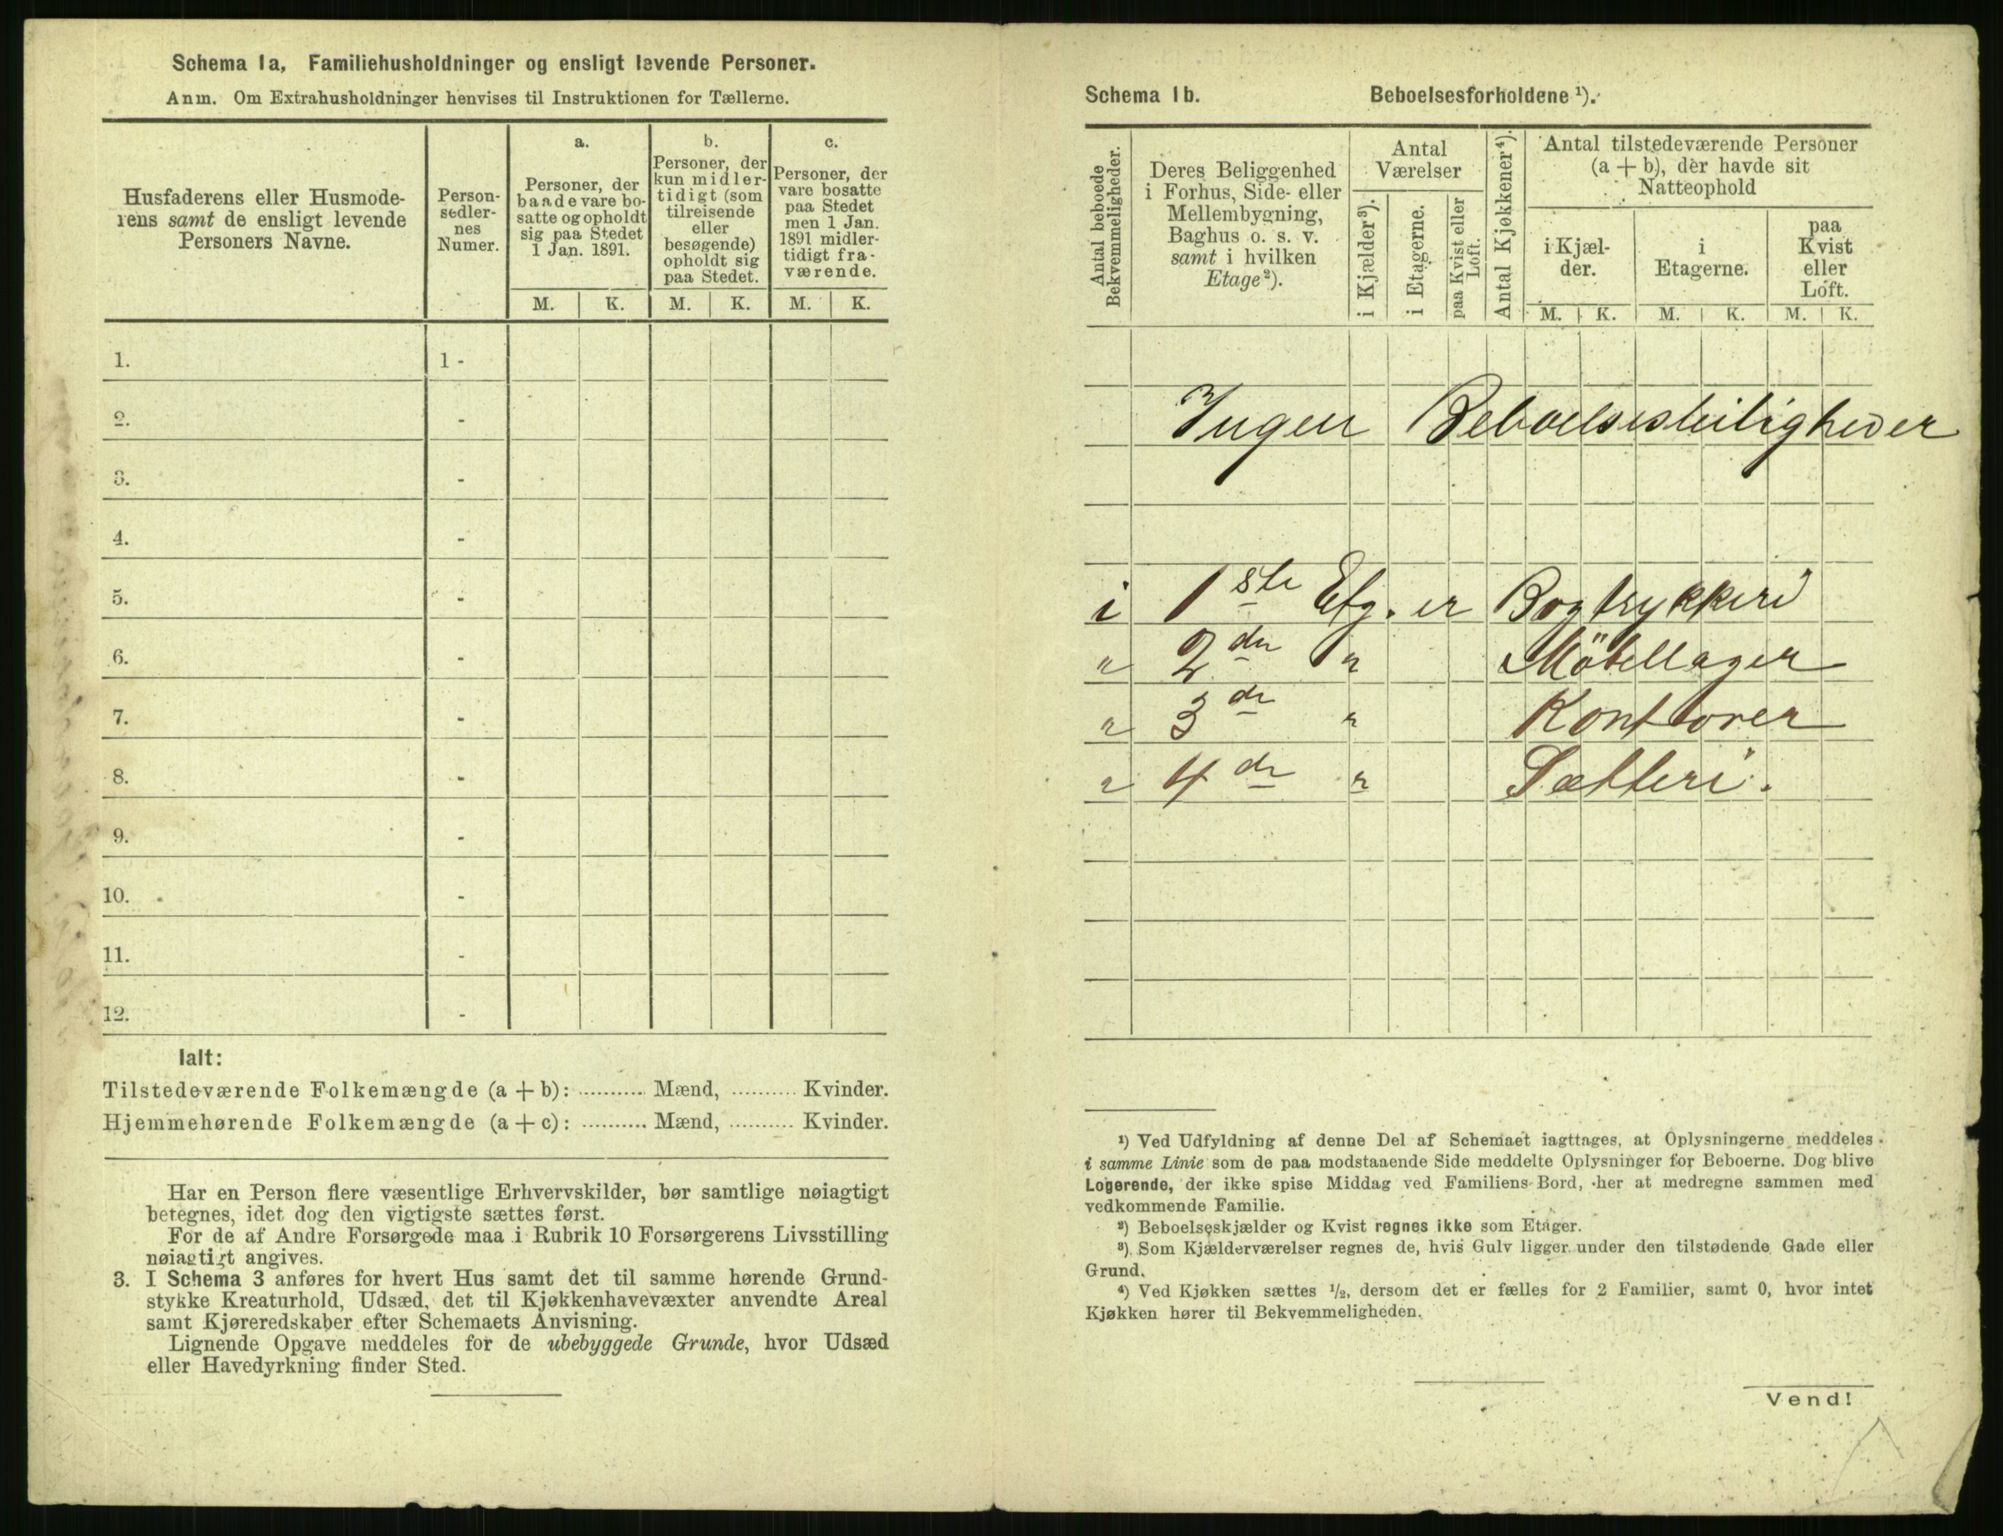 Schema 1a, Familiehusholdninger og ensligt levende Personer.
Anm. Om Extrahusholdninger henvises til Instruktionen for Tællerne.
Husfaderens eller Husmode-
rens samt de ensligt levende
Personers Navne.
Person-
sedler-
nes
Numer.
a.
Personer, der
baade vare bo-
satte og opholdt
sig paa Stedet
1 Jan. 1891.
b.
Personer, der
kun midler-
tidigt (som
tilreisende
eller
besøgende)
opholdt sig
paa Stedet.
c.
Personer, der
vare bosatte
paa Stedet
men 1 Jan.
1891 midler-
tidigt fra-
værende.
M. K. M. K. M. K.
1. 1 -
2. -
3. -
4. -
5. -
6. -
7. -
8. -
9. -
10. -
11. -
12. -
Ialt:
Tilstedeværende Folkemængde (a + b): .......... Mænd, .......... Kvinder.
Hjemmehørende Folkemængde (a + c): .......... Mænd, .......... Kvinder.
Har en Person flere væsentlige Erhvervskilder, bør samtlige nøiagtigt
betegnes, idet dog den vigtigste sættes først.
For de af Andre Forsørgede maa i Rubrik 10 Forsørgerens Livsstilling
nøiagtigt angives.
3. I Schema 3 anføres for hvert Hus samt det til samme hørende Grund-
stykke Kreaturhold, Udsæd, det til Kjøkkenhavevæxter anvendte Areal
samt Kjøreredskaber efter Schemaets Anvisning.
Lignende Opgave meddeles for de ubebyggede Grunde, hvor Udsæd
eller Havedyrkning finder Sted.
Schema 1b. Beboelsesforholdene ¹).
Antal beboede
Bekvemmeligheder.
Deres Beliggenhed
i Forhus, Side- eller
Mellembygning,
Baghus o. s. v.
samt i hvilken
Etage²).
Antal
Værelser
i Kjælder³).
i Etagerne.
paa Kvist eller
Loft.
Antal Kjøkkener⁴).
Antal tilstedeværende Personer
(a + b), der havde sit
Natteophold
i Kjæl-
der.
i
Etagerne.
paa
Kvist
eller
Loft.
M. K. M. K. M. K.
Ingen Beboelsesleiligheder
i 1ste Etg. er Bogtrykkeri
" 2den " Möbellager
" 3de " Kontorer
" 4de " Sætteri.
¹) Ved Udfyldning af denne Del af Schemaet iagttages, at Oplysningerne meddeles
i samme Linie som de paa modstaaende Side meddelte Oplysninger for Beboerne. Dog blive
Logerende, der ikke spise Middag ved Familiens Bord, her at medregne sammen med
vedkommende Familie.
²) Beboelseskjælder og Kvist regnes ikke som Etager.
³) Som Kjælderværelser regnes de, hvis Gulv ligger under den tilstødende Gade eller
Grund.
⁴) Ved Kjøkken sættes ½, dersom det er fælles for 2 Familier, samt 0, hvor intet
Kjøkken hører til Bekvemmeligheden.
Vend!